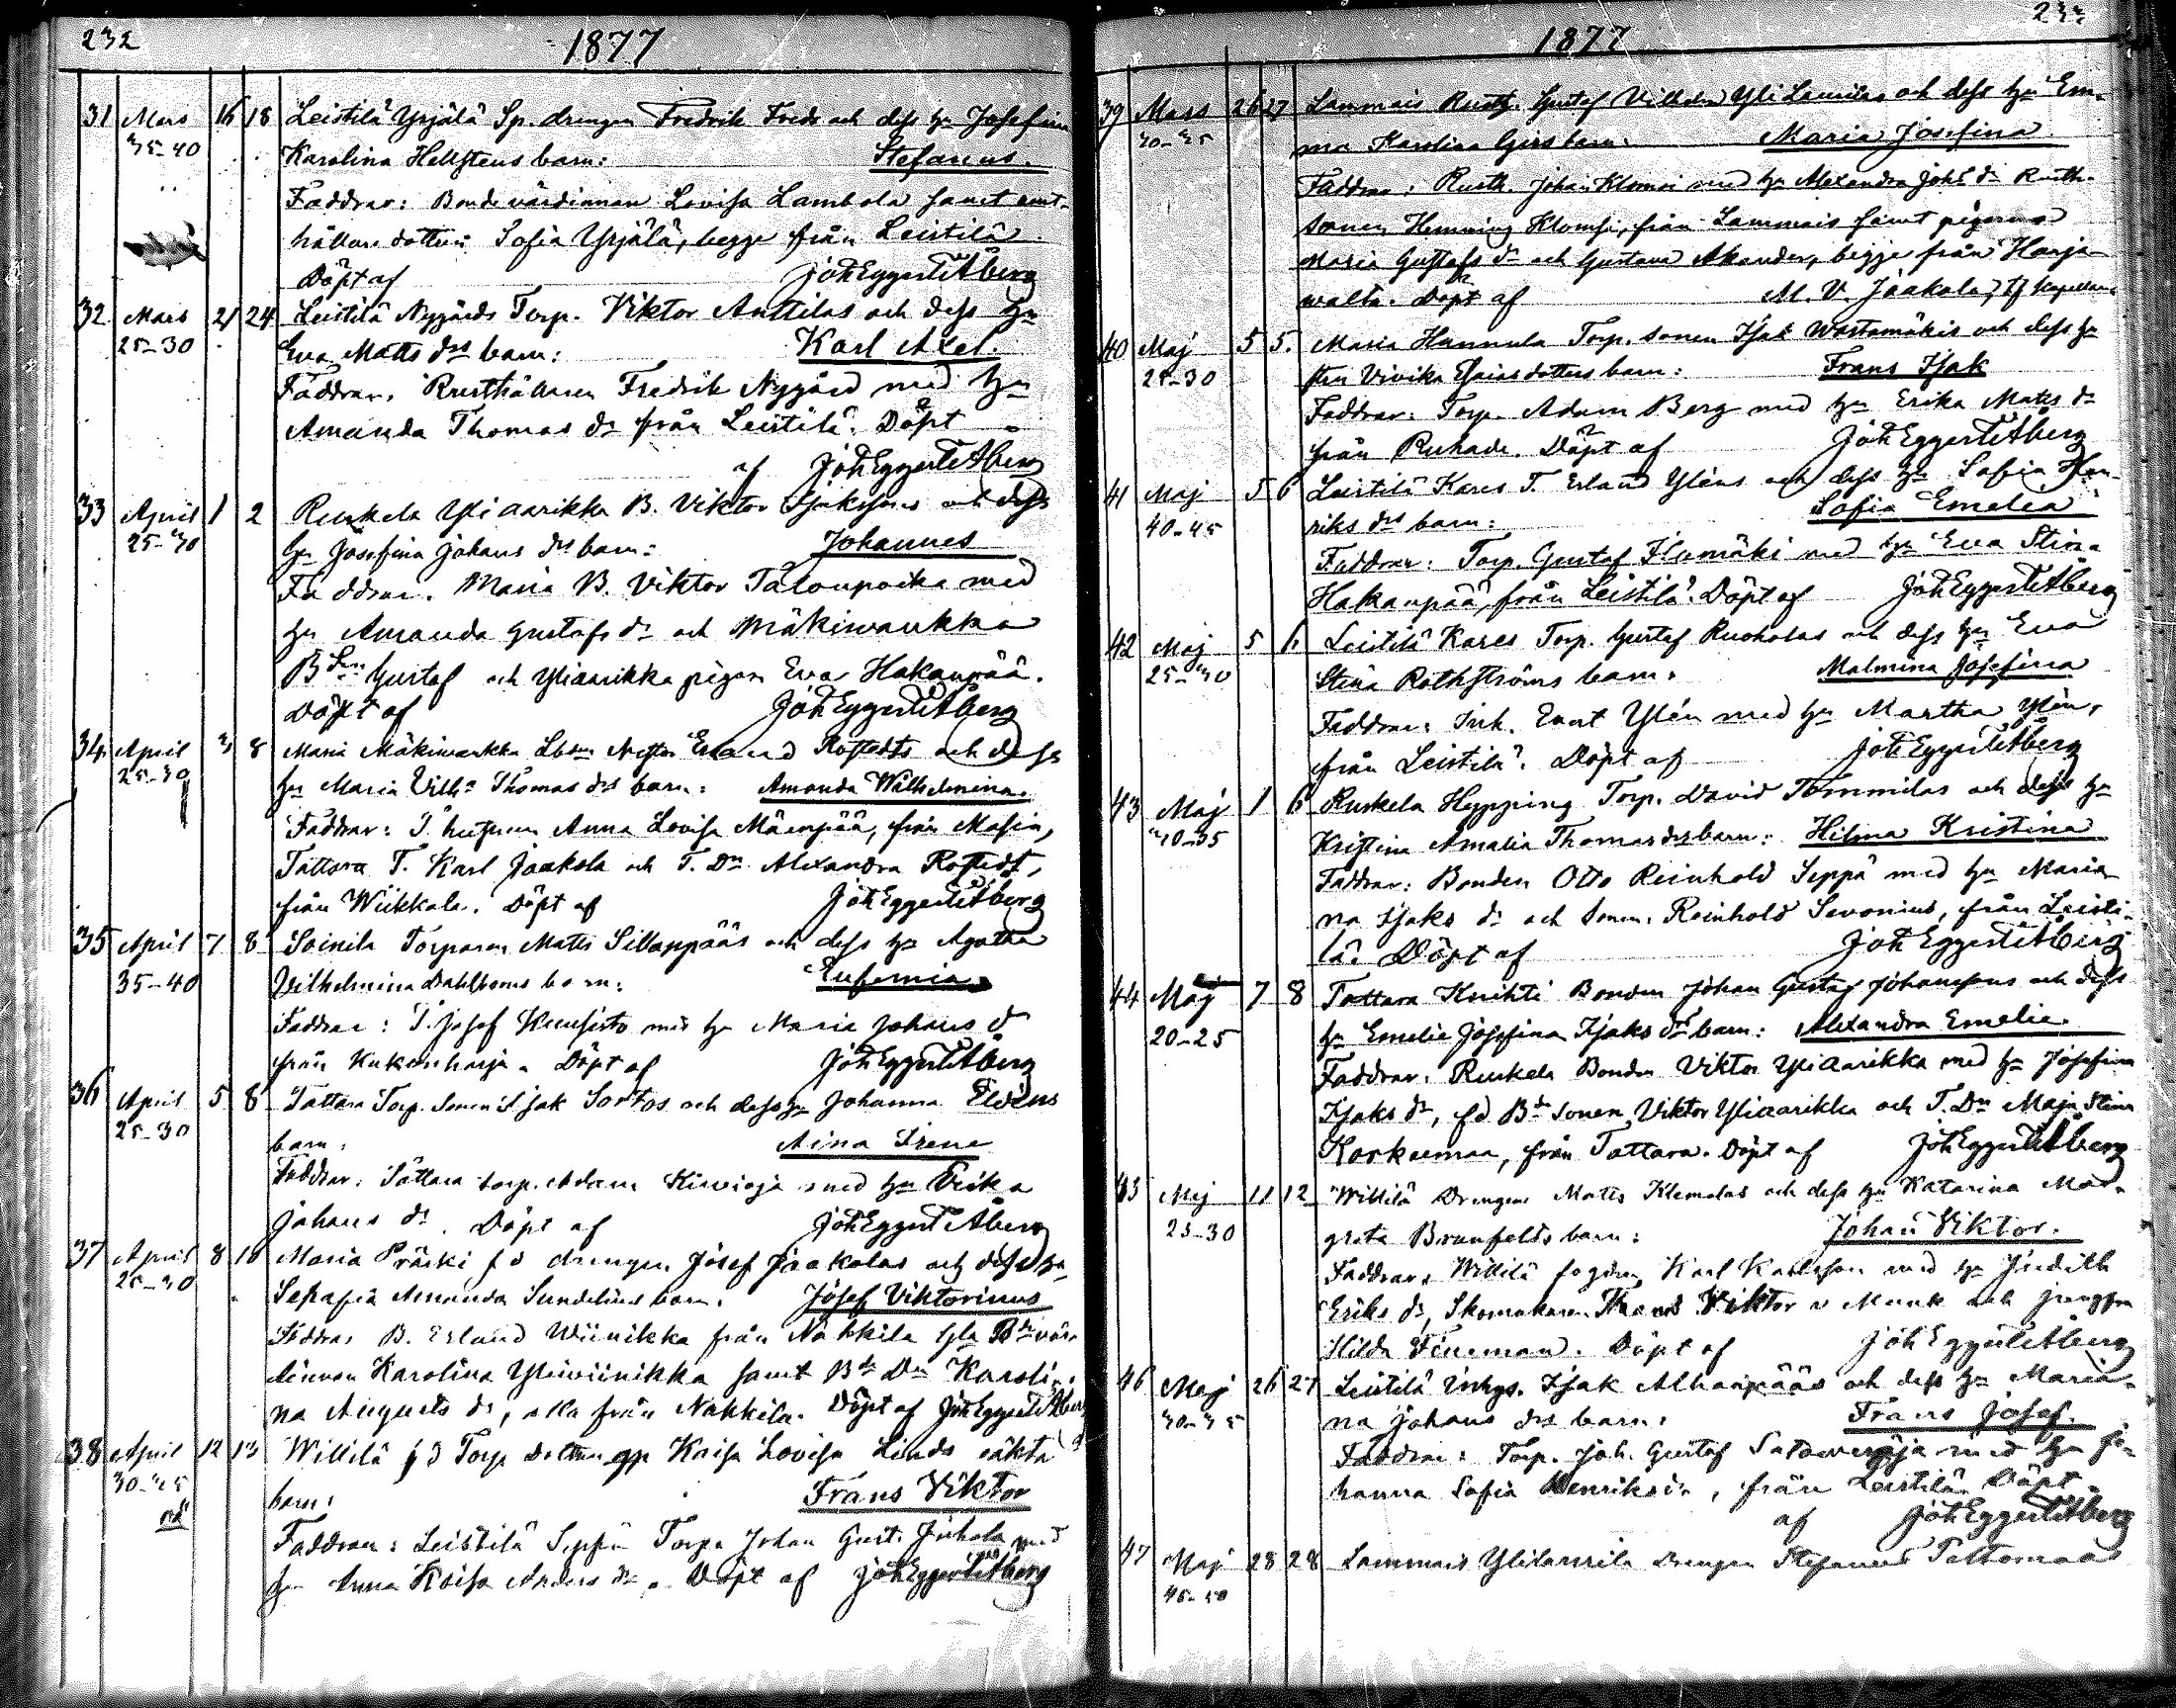 232
1877
31 Mars 16 18 Leistilä Yrjälä Sp. drengen Fredrik Freds och dess hu Josefina
35-40 Karolina Hellstens barn: Stefanus.
Faddrar: Bondevärdinnan Lovisa Lambola samt rust-
hållare dottren Sofia Yrjälä, begge från Leistilä
Döpt af Joh Eggert Åberg
32 Mars 21 24 Leistilä Nygårds Torp. Viktor Anttilas och dess hu
25-30 Eva Matts drs barn: Karl Axel.
Faddrar. Rusthållaren Fredrik Nygård med hu
Amanda Thomas dr från Leistilä. Döpt
af Joh Eggert Åberg
33 April 1 2 Ruskela Yliaarikka B. Viktor Isakssons och dess
25-30 hu Josefina Johans drs barn: Johannes
Faddrar. Maria B. Viktor Taloupoika med
hu Amanda Gustafs dr och Mäkiwaukka
B Son Gustaf och Yliaarikka pigan Eva Hakanpää.
Döpt af Joh Eggert Åberg
34 April 3 8 Maria Mäkiwaukka Erland Rostedts och dess
25-30 hu Maria Vilha Thomas drs barn: Amanda Wilhelmina.
Faddrar: T. hustrun Anna Lovisa Mäenpää, från Masia,
Tattara T. Karl Jaakola och T. Dn Alexandra Rostedt,
från Wiikkala. Döpt af Joh Eggert Åberg
35 April 7 8 Soinila Torparen Matts Sillanpääs och dess hu Agatha
35-40 Vilhelmina Dahlboms barn: Eufemia.
Faddrar: T. Josef Kuusisto med hu Maria Johans dr
från Kukonharja. Döpt af Joh Eggert Åberg
36 April 5 8 Tattara Torp. Sonen Isak Sortos och dess hu Johanna Eldéns
25-30 barn: Aina Irene
Faddrar: Tattara torp. Adam Kivioja med hu Erika
Johans dr. Döpt af Joh Eggert Åberg
37 April 8 10 Maria Präski fd drengen Josef Jaakolas och dess hu
25-30 Serafia Amanda Sundelins barn. Josef Viktorinus
Faddrar B. Erland Wiinikka från Nakkila gla Bde vär-
dinnan Karolina Yliwiinikka samt Bde Dn Karoli-
na Augusts dr, alla från Nakkila. Döpt af Joh Eggert Åberg
38 April 12 13 Willilä fd Torp dottren Kaisa Lovisa Linds oäkta
30-35 barn: Frans Viktor
oä
Faddrar: Leistilä Seppä Torp. Johan Gust. Juhola med
hu Anna Kaisa Anders dr. Döpt af Joh Eggert Åberg
1877
39 Mars 26 27 Lammais Rusth. Gustaf Vilhelm Yli Laurilas och dess hu Em-
30-35 ma Karolina Girs barn: Maria Josefina
Faddrar: Rusth. Johan Klomsi med hu Alexandra Johs dr Rusth.
sonen Henning Klomsi, från Lammais samt pigorna
Maria Gustafs dr och Gustava Akander, begge från Harja-
walta. Döpt af M. V. Jaakola, tf kapellan
40 Maj 5 5. Maria Hannula Torp. sonen Isak Wastamäkis och dess hu
25-30 Vivika Esaias dotters barn: Frans Isak
Faddrar: Torp. Adam Berg med hu Erika Matts dr
från Ruhade. Döpt af Joh Eggert Åberg
41 Maj 5 6 Leistilä Kares T. Erland Yléns och dess hu Sofia Hen-
40-45 riks drs barn: Sofia Emelia
Faddrar: Torp. Gustaf Ilomäki med hu Eva Stina
Hakanpää, från Leistilä. Döpt af Joh Eggert Åberg
42 Maj 5 6 Leistilä Kares Torp. Gustaf Ruoholas och dess hu Eva
25-30 Stina Rothströms barn: Malmina Josefina
Faddrar: Inh. Evert Ylén med hu Martha Ylén,
från Leistilä. Döpt af Joh Eggert Åberg
43 Maj 1 6 Ruskela Hypping Torp. David Tommilas och dess hu
30-35 Kristina Amalia Thomas drs barn: Hilma Kristina
Faddrar: Bonden Otto Reinhold Seppä med hu Maria-
na Isaks dr och sonen Reinhold Savonius, från Leisti-
lä. Döpt af Joh Eggert Åberg
44 Maj 7 8 Tattara Knihti Bonden Johan Gustaf Johanssons och dess
20-25 hu Emelie Josefina Isaks drs barn: Alexandra Emelie.
Faddrar: Ruskela Bonden Viktor Yliaarikka med hu Josefina
Isaks dr, fd Bde sonen Viktor Yliaarikka och T. Dn Maja Stina
Korkeemaa, från Tattara. Döpt af Joh Eggert Åberg
45 Maj 11 12 Willilä Drengen Matts Klemolas och dess hu Katarina Mar-
25-30 greta Brunfelds barn: Johan Viktor.
Faddrar: Willilä fogden Karl Karlsson med hu Judith
Eriks dr, Skomakaren Frans Viktor Munk och jungfru
Hilda Fineman. Döpt af Joh Eggert Åberg
46 Maj 26 27 Leistilä Inhys. Isak Alhonpääs och dess hu Maria-
30-35 na Johans drs barn: Frans Josef.
Faddrar: Torp. Joh. Gustaf Satowuoja med hu Jo-
hanna Sofia Henriks dr, från Leistilä Döpt
af Joh Eggert Åberg
47 Maj 28 28 Lammais Ylilaurila Drengen Stefanus Taltomaas
45-50